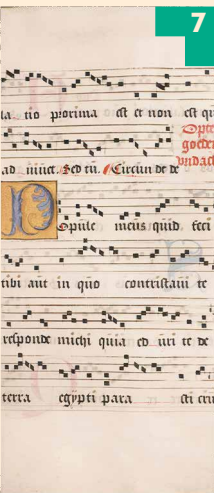 7
ta tio proxima est et non est qu
ad iuuet. Sed tu. Circūn de de
Popule meus quid feci
tibi aut in quo contristaui te
responde michi quia ed uxi te de
terra egypti para sti cru